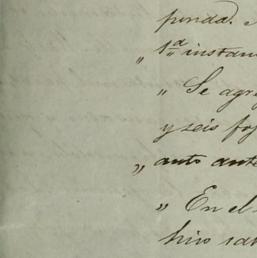 punda.
„ 1ª instan
„ Se agre
y seis foj
„ auto ante
„ En el
hizo sa